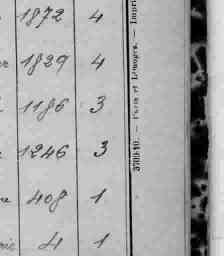 1872 4
1829 4
1186 3
1246 3
408 1
4 1
37010-10. — Paris et Limoges. — Impri